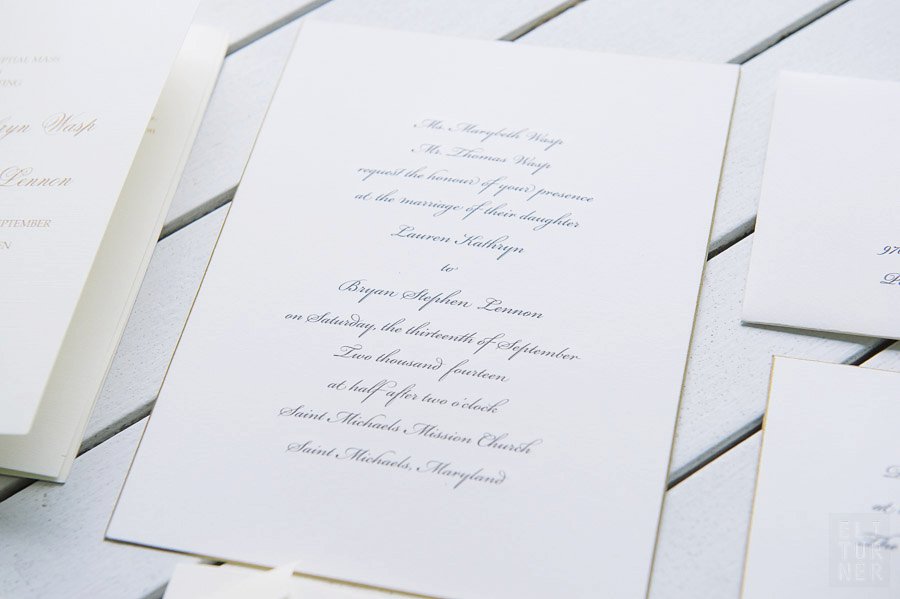 Ms. Marybeth Wasp
Mr. Thomas Wasp
request the honour of your presence
at the marriage of their daughter
Lauren Kathryn
to
Bryan Stephen Lennon
on Saturday, the thirteenth of September
Two thousand fourteen
at half after two o'clock
Saint Michaels Mission Church
Saint Michaels, Maryland
MASS
Wasp
Lennon
SEPTEMBER
970
at
The
ELI
TURNER